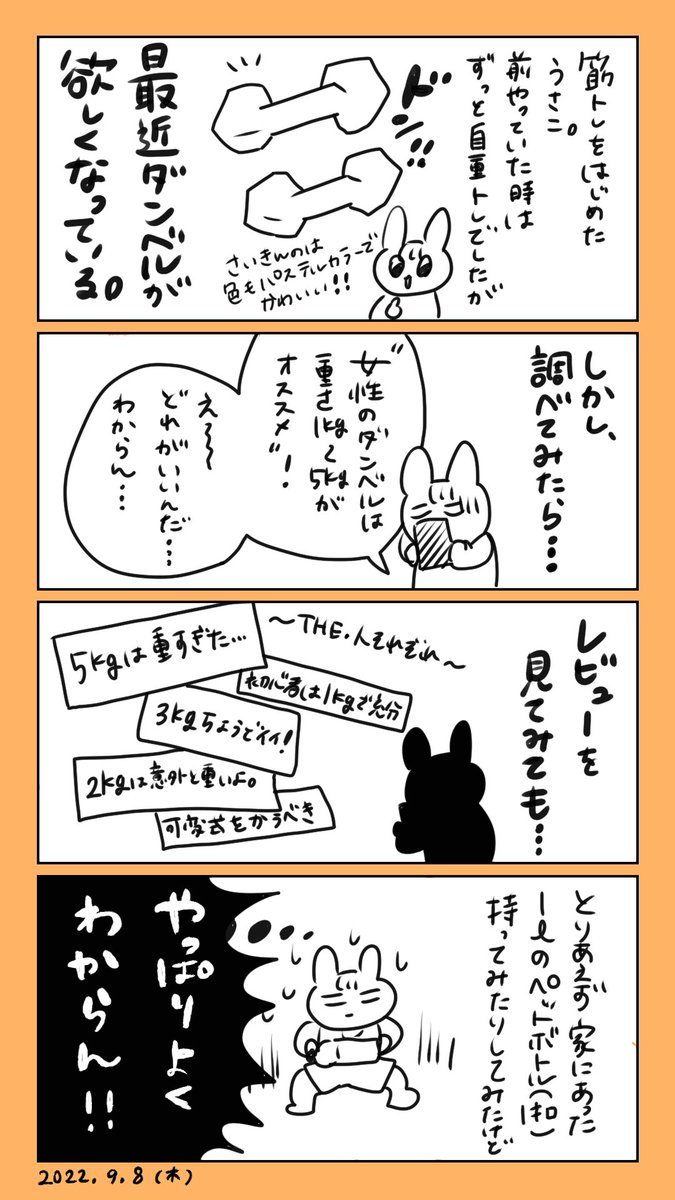 筋トレをはじめた
うさこ。
前やっていた時は
ずっと自重トレでしたが
ドン!!
さいきんのは
色もパステルカラーで
かわいい!!
最近ダンベルが
欲しくなっている。
しかし、
調べてみたら…
"女性のダンベルは
重さ1kg〜5kgが
オススメ"!
え〜〜
どれがいいんだ…
わからん…
レビューを
見てみても…
〜THE・人それぞれ〜
5kgは重すぎた…
初心者は1kgで充分
3kgちょうどイイ!
2kgは意外と重いよ。
可変式をかうべき
とりあえず家にあった
1ℓのペットボトル(1kg)
持ってみたりしてみたけど
やっぱりよく
わからん!!
2022.9.8(木)